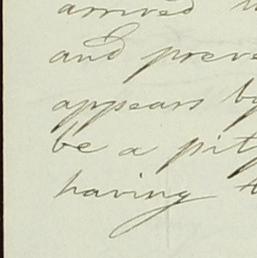 arrived
and preve
appears by
be a pit
having t